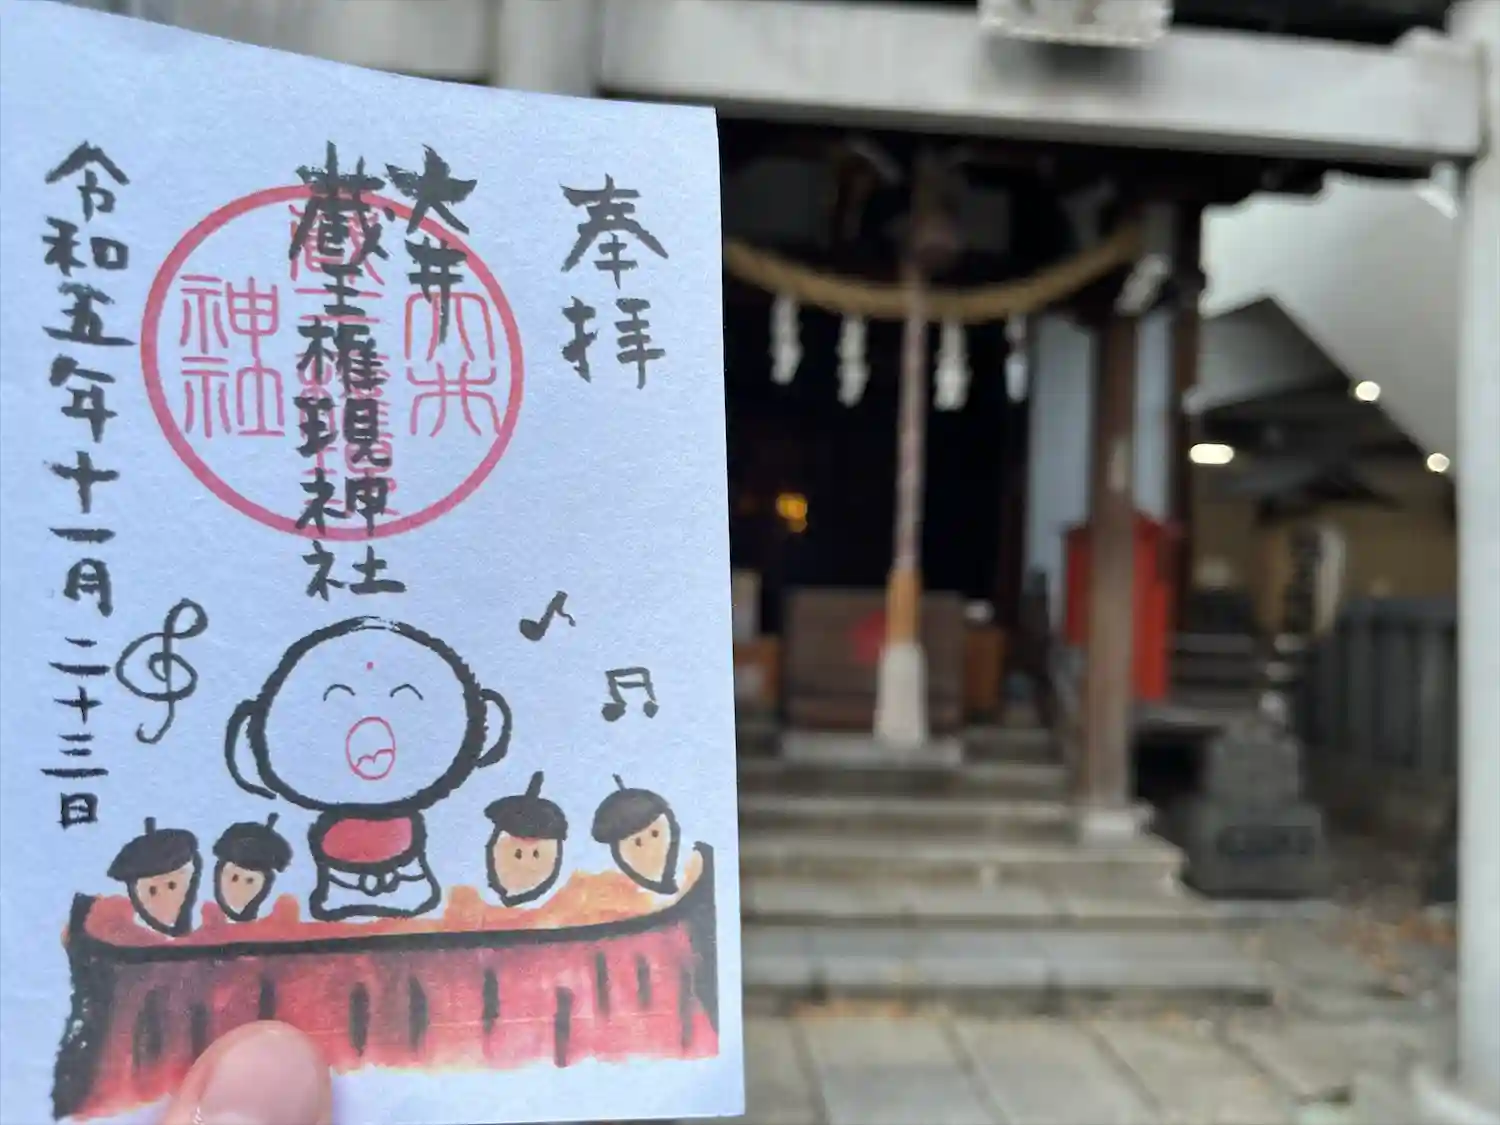 奉拝
大井
蔵王権現神社
大井
蔵王権現
神社
令和五年十一月二十三日